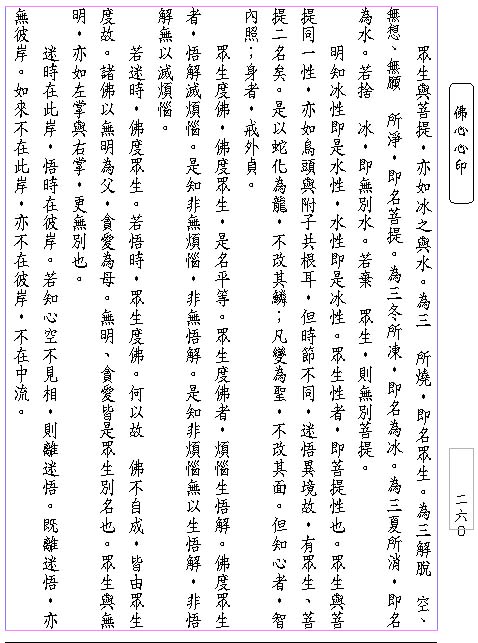 佛心心印
二六〇
眾生與菩提，亦如冰之與水。為三　所燒，即名眾生。為三解脫　空、
無想、無願　所淨，即名菩提。為三冬所凍，即名為冰。為三夏所消，即名
為水。若捨　冰，即無別水。若棄　眾生，則無別菩提。
明知冰性即是水性，水性即是冰性。眾生性者，即菩提性也。眾生與菩
提同一性，亦如烏頭與附子共根耳，但時節不同，迷悟異境故，有眾生、菩
提二名矣。是以蛇化為龍，不改其鱗；凡變為聖，不改其面。但知心者，智
內照；身者，戒外貞。
眾生度佛，佛度眾生，是名平等。眾生度佛者，煩惱生悟解。佛度眾生
者，悟解滅煩惱。是知非無煩惱，非無悟解。是知非煩惱無以生悟解，非悟
解無以滅煩惱。
若迷時，佛度眾生。若悟時，眾生度佛。何以故　佛不自成，皆由眾生
度故。諸佛以無明為父，貪愛為母。無明、貪愛皆是眾生別名也。眾生與無
明，亦如左掌與右掌，更無別也。
迷時在此岸，悟時在彼岸。若知心空不見相，則離迷悟。既離迷悟，亦
無彼岸。如來不在此岸，亦不在彼岸，不在中流。